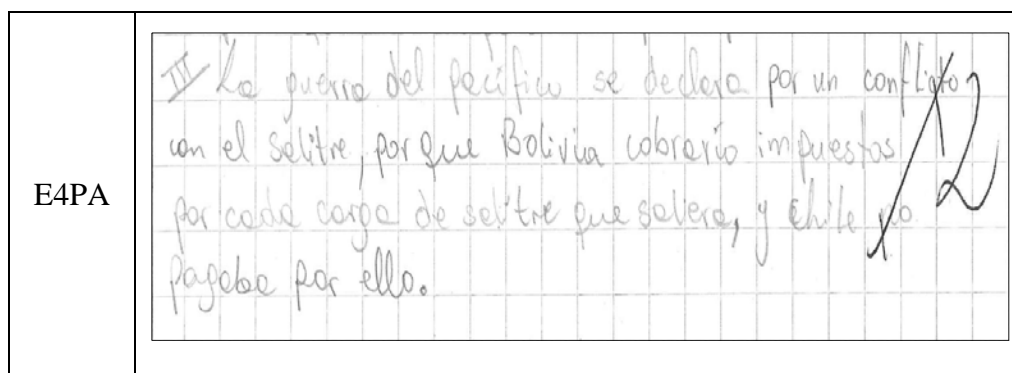 E4PA
III La guerra del pacífico se declara por un confligto
con el salitre, por que Bolivia cobraría impuestos
por cada carga de salitre que saliera, y chile no
pagaba por ello.